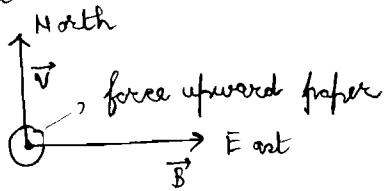 North
V
force upward paper
East
B